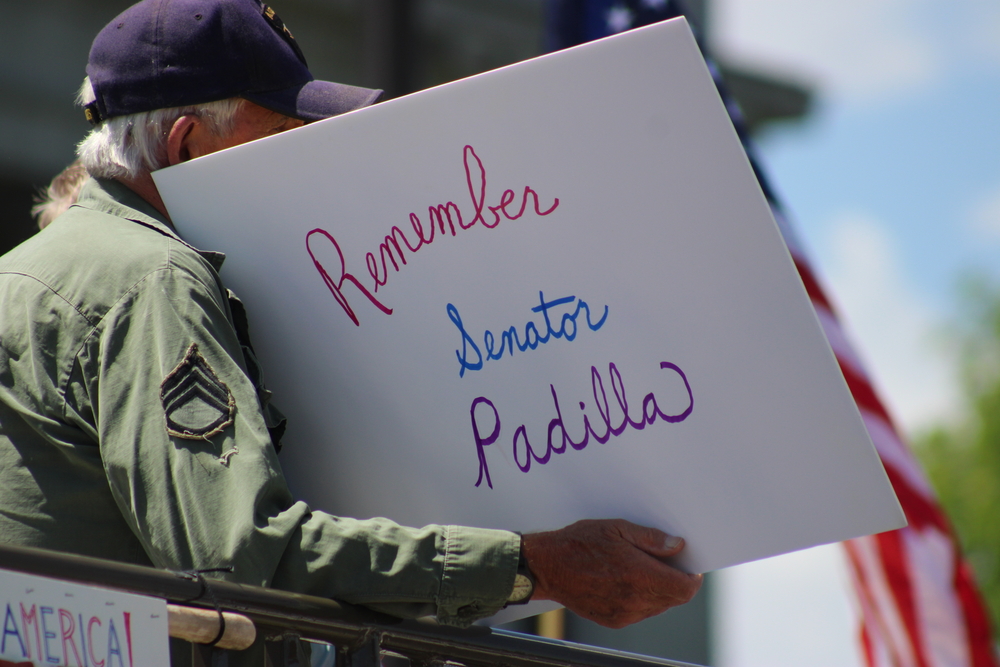 Remember
Senator
Padilla
AMERICA!